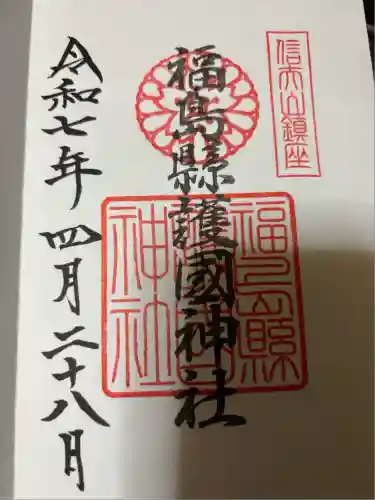 信夫山鎮座
福島縣護國神社
福島縣
護國
神社
令和七年四月二十八日